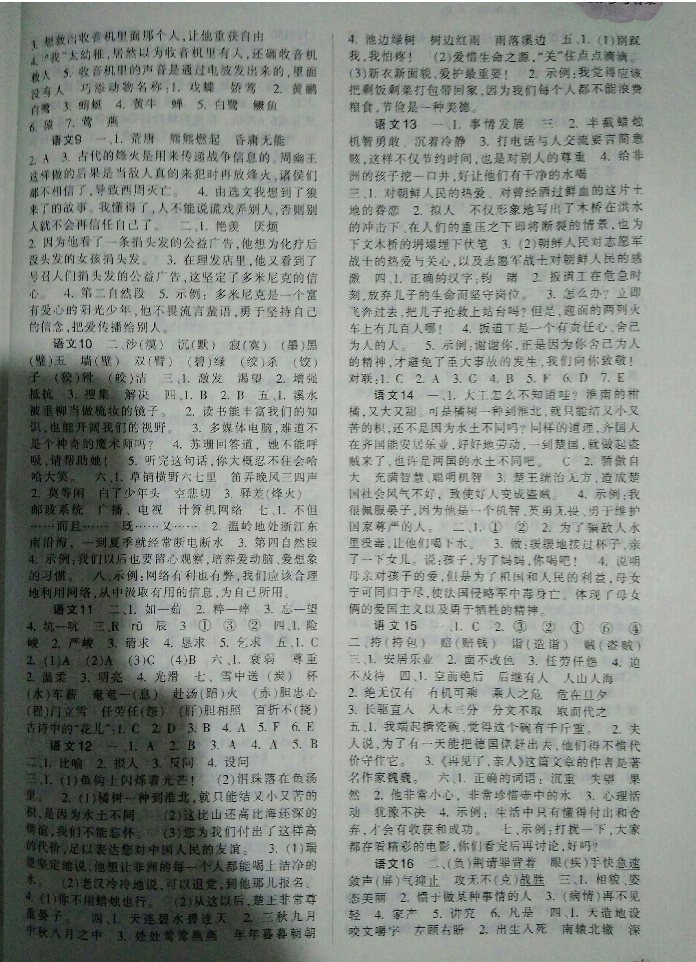 3. 想救出收音机里面那个人,让他重获自由
4. “我”太幼稚,居然以为收音机里有人,还砸收音机
救人 5. 收音机里的声音是通过电波发出来的,里面
没有人 巧添动物名称:1. 戏蝶 娇莺 2. 黄鹂
白鹭 3. 蜻蜓 4. 黄牛 蝉 5. 白鹭 鳜鱼
6. 猿 7. 莺 燕
语文9 一、1. 荒唐 熊熊燃起 昏庸无能
2. A 3. 古代的烽火是用来传递战争信息的。周幽王
这样做的后果是当敌人真的来犯时再放烽火,诸侯们
都不相信了,导致西周灭亡。 4. 由选文我想到了狼
来了的故事。我懂得了,人不能说谎戏弄别人,否则别
人就不会再信任自己了。 二、1. 艳羡 厌烦
2. 因为他看了一条捐头发的公益广告,他想为化疗后
没头发的女孩捐头发。 3. 在理发店里,他又看到了
号召人们捐头发的公益广告,这坚定了多米尼克的信
心。 4. 第二自然段 5. 示例:多米尼克是一个富
有爱心的阳光少年,他不畏流言蜚语,勇于坚持自己
的信念,把爱传播给别人。
语文10 二、沙(漠) 沉(默) 寂(寞) (墨)黑
(璧)玉 墙(壁) 双(臂) (碧)绿 (绞)杀 (饺)
子 (狡)猾 (皎)洁 三、1. 激发 渴望 2. 增强
抵抗 3. 搜集 解决 四、1. B 2. B 五、1. 溪水
被垂柳当做梳妆的镜子。 2. 读书能丰富我们的知
识,也能开阔我们的视野。 3. 多媒体电脑,难道不
是个神奇的魔术师吗? 4. 苏珊回答道,她不能呼
吸,请帮助她! 5. 听完这句话,你大概忍不住会哈
哈大笑。 六、1. 草铺横野六七里 笛弄晚风三四声
2. 莫等闲 白了少年头 空悲切 3. 驿差(烽火)
邮政系统 广播、电视 计算机网络 七、1. 不但
……而且…… 既……又…… 2. 温岭地处浙江东
南沿海,一到夏季就经常断电断水 3. 第四自然段
4. 示例:我们以后也要留心观察,培养爱动脑、爱想象
的习惯。 八、示例:网络有利也有弊,我们应该合理
地利用网络,从中汲取有用的信息,为自己所用。
语文11 二、1. 如—茹 2. 粹—瘁 3. 忘—望
4. 坑—吭 三、R rǔ 辰 3 ① ③ ② 四、1. 险
峻 2. 严峻 3. 请求 4. 恳求 5. 乞求 五、1. C
2. (1)A (2)A (3)C (4)B 六、1. 衰弱 尊重
2. 温柔 3. 明亮 4. 光滑 七、雪中送(炭) 杯
(水)车薪 奄奄一(息) 赴汤(蹈)火 (赤)胆忠心
(程)门立雪 任劳任(怨) (肝)胆相照 百折不(挠)
古诗中的“花儿”:1. C 2. D 3. B 4. A 5. F 6. E
语文12 一、1. A 2. B 3. A 4. A 5. B
二、1. 比喻 2. 拟人 3. 反问 4. 设问
三、1. (1)鱼钩上闪烁着光芒! (2)泪珠落在鱼汤
里。 2. (1)橘树一种到淮北,就只能结又小又苦的
枳,是因为水土不同。 (2)这比山还高比海还深的
情谊,我们不能忘怀。 (3)您为我们付出了这样高
的代价,足以表达您对中国人民的友谊。 3. (1)瑞
恩坚定地说,他想让非洲的每一个人都能喝上洁净的
水。 (2)老汉冷冷地说,可以退党,到他那儿报名。
4. (1)你不用蜡烛也行。 (2)从这以后,楚王非常尊
重晏子。 四、1. 天连碧水碧连天 2. 三秋九月
中秋八月之中 3. 处处莺莺燕燕 年年暮暮朝朝
4. 池边绿树 树边红雨 雨落溪边 五、1. (1)别踩
我,我怕疼! (2)爱惜生命之源,“关”住点点滴滴。
(3)新衣新面貌,爱护最重要! 2. 示例:我觉得应该
把剩饭剩菜打包带回家,因为我们每个人都不能浪费
粮食,节俭是一种美德。
语文13 一、1. 事情发展 三 2. 半截蜡烛
机智勇敢、沉着冷静 3. 打电话与人交流要言简意
赅,这样不仅节约时间,也是对别人的尊重 4. 给非
洲的孩子挖一口井,好让他们有干净的水喝
三、1. 对朝鲜人民的热爱、对曾经洒过鲜血的这片土
地的眷恋 2. 拟人 不仅形象地写出了木桥在洪水
的冲击下、在人们的重压之下即将断裂的情景,也为
下文木桥的坍塌埋下伏笔 3. (2)朝鲜人民对志愿军
战士的热爱与关心,以及志愿军战士对朝鲜人民的感
激 四、1. 正确的汉字:钩 赌 2. 扳道工在危急时
刻,放弃儿子的生命而坚守岗位。 3. 怎么办?立即
飞奔过去,把儿子抢救上站台吗?但是,迎面的两列火
车上有几百人哪! 4. 扳道工是一个有责任心、舍己
为人的人。 5. 示例:谢谢你:正是因为你舍己为人
的精神,才避免了重大事故的发生,我们向你致敬!
对联:1. C 2. A 3. G 4. B 5. F 6. D 7. E
语文14 一、1. 大王怎么不知道哇?淮南的柑
橘,又大又甜。可是橘树一种到淮北,就只能结又小又
苦的枳,还不是因为水土不同吗?同样的道理,齐国人
在齐国能安居乐业,好好地劳动,一到楚国,就做起盗
贼来了,也许是两国的水土不同吧。 C 2. 骄傲自
大 充满智慧、聪明机智 3. 楚王统治无方,造成楚
国社会风气不好,致使好人变成盗贼。 4. 示例:我
很佩服晏子,因为他是一个机智、英勇无畏、勇于维护
国家尊严的人。 二、1. ① ② 2. 为了骗敌人水
里没毒,让他们喝下水。 3. 做:缓缓地接过杯子,亲
了一下女儿。说:孩子,为了妈妈,你喝吧! 4. 说明
母亲对孩子的爱,但是为了祖国和人民的利益,母女
宁可同归于尽,使法国侵略军中毒身亡。体现了母女
俩的爱国主义以及勇于牺牲的精神。
语文15 一、1. C 2. ③ ② ① ⑥ ④
二、挎(挎包) 赔(赔钱) 诣(造诣) 贼(盗贼)
三、1. 安居乐业 2. 面不改色 3. 任劳任怨 4. 迫
不及待 四、1. 空前绝后 后继有人 人山人海
2. 绝无仅有 有机可乘 乘人之危 危在旦夕
3. 长驱直入 入木三分 分文不取 取而代之
五、1. 我端起搪瓷碗,觉得这个碗有千斤重。 2. 夫
人说,为了有一天能把德国佬赶出去,他们得不惜代
价守住它。 3.《再见了,亲人》这篇文章的作者是著
名作家魏巍。 六、1. 正确的词语:沉重 失望 果
然 2. 他非常小心,非常珍惜壶中的水 3. 心理活
动 犹豫不决 4. 示例:生活中只有懂得付出和舍
弃,才会有收获和成功。 七、示例:打扰一下,大家
都在看精彩的电影,你们看完后再讨论,好吗?
语文16 二、(负)荆请罪背着 眼(疾)手快急速
敛声(屏)气抑止 攻无不(克)战胜 三、1. 相貌、姿
态美丽 2. 惯于做某种事情的人 3. (病情)再不见
轻 4. 家产 5. 讲究 6. 凡是 四、1. 天造地设
咬文嚼字 左顾右盼 2. 出生入死 南辕北辙 深